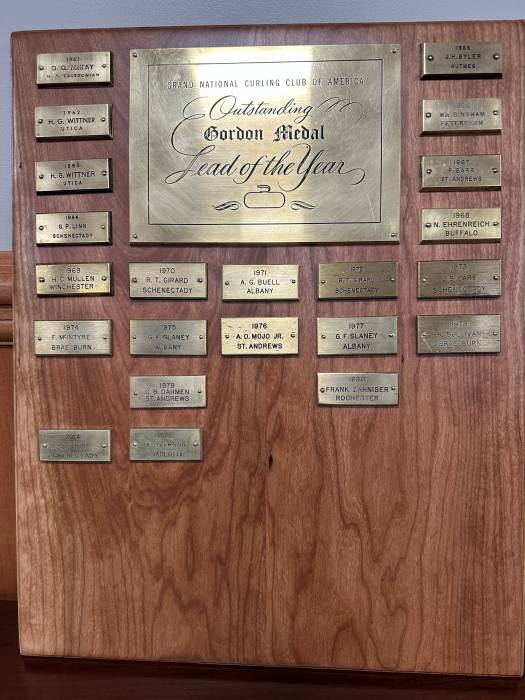 GRAND NATIONAL CURLING CLUB OF AMERICA
Outstanding
Gordon Medal
Lead of the Year
1961
D. G. McKAY
N. Y. CALEDONIAN
1962
H. G. WITTNER
UTICA
1963
H. G. WITTNER
UTICA
1964
S. P. LINK
SCHENECTADY
1965
J. H. BYLER
NUTMEG
WM. BINGHAM
PETERSHAM
1967
P. BARR
ST. ANDREWS
1968
N. EHRENREICH
BUFFALO
1969
H. C. MULLEN
WINCHESTER
1970
R. T. GIRARD
SCHENECTADY
1971
A. G. BUELL
ALBANY
1972
R. T. GIRARD
SCHENECTADY
1973
CARY
SCHENECTADY
1974
F. McINTYRE
BRAE BURN
1975
G. F. SLANEY
ALBANY
1976
A. O. MOJO JR.
ST. ANDREWS
1977
G. F. SLANEY
ALBANY
SULLIVAN
BRAE BURN
1979
C. B. DAHMEN
ST. ANDREWS
1980
FRANK ZAHNISER
ROCHESTER
SCHENECTADY